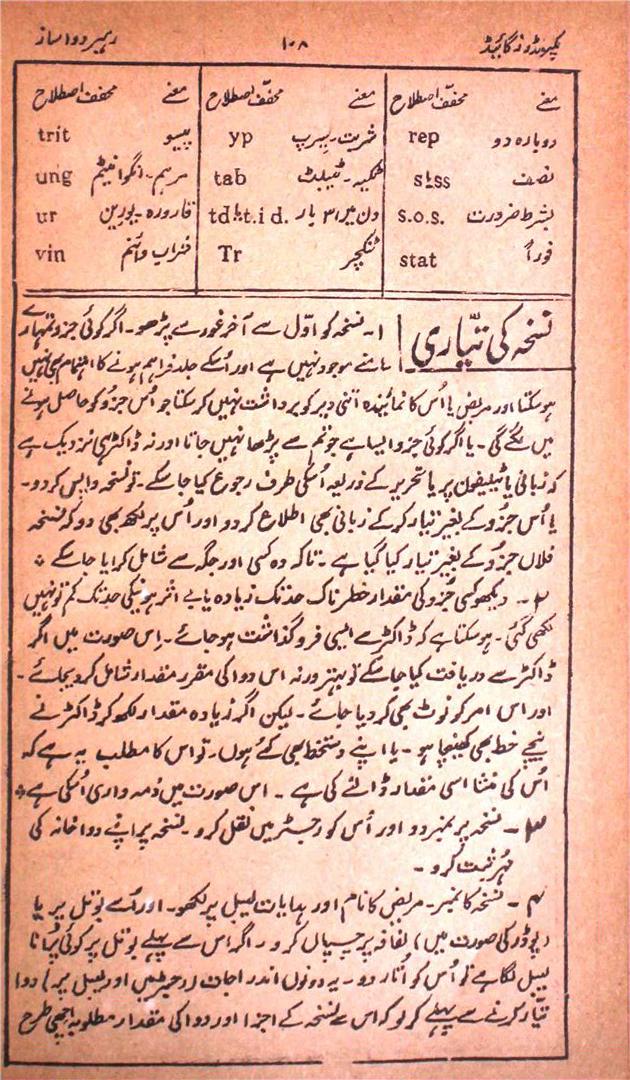 کمپونڈرز گائیڈ ۱۰۸ رہبر دواساز
معنے مخفف اصطلاح معنے مخفف اصطلاح معنے مخفف اصطلاح
دوبارہ دو rep شربت۔سیرپ yp پیسو trit
نصف s یا ss ٹکیہ۔ٹیبلٹ tab مرہم۔انگوانیٹم ung
بشرط ضرورت s.o.s. دن میں ۳ بار td یا t.i.d. قارورہ۔یورین ur
فوراً stat ٹنکچر Tr شراب وائنم vin
نسخہ کی تیاری
۱۔ نسخہ کو اوّل سے آخر غور سے پڑھو۔ اگر کوئی جزو تمہارے
سامنے موجود نہیں ہے اور اُسکے جلد فراہم ہونے کا اہتمام بھی نہیں
ہوسکتا اور مریض یا اُس کا نمائیندہ اتنی دیر کو برداشت نہیں کرسکتا جو اُس جزو کو حاصل ہونے
میں لگے گی۔ یا اگر کوئی جزو ایسا ہے جو تم سے پڑھا نہیں جاتا اور نہ ڈاکٹر ہی نزدیک ہے
کہ زبانی یا ٹیلیفون پر یا تحریر کے ذریعہ اُسکی طرف رجوع کیا جاسکے۔ تو نسخہ واپس کردو۔
یا اُس جزو کے بغیر تیار کرکے زبانی بھی اطلاع کردو اور اُس پر لکھ بھی دو کہ نسخہ
فلاں جزو کے بغیر تیار کیا گیا ہے۔ تاکہ وہ کسی اور جگہ سے شامل کرایا جاسکے *
۲۔ دیکھو کسی جزو کی مقدار خطرناک حد تک زیادہ یا بے اثر ہونیکی حد تک کم تو نہیں
لکھی گئی۔ ہوسکتا ہے کہ ڈاکٹر سے ایسی فروگذاشت ہوجائے۔ اِس صورت میں اگر
ڈاکٹر سے دریافت کیا جاسکے تو بہتر ورنہ اس دوا کی مقرر مقدار شامل کردیجائے۔
اور اس امر کو نوٹ بھی کردیا جائے۔ لیکن اگر زیادہ مقدار لکھ کر ڈاکٹر نے
نیچے خط بھی کھینچا ہو۔ یا اپنے دستخط بھی کئے ہوں۔ تو اس کا مطلب یہ ہے کہ
اُس کی منشا اسی مقدار ڈالنے کی ہے۔ اس صورت میں ذمہ داری اُسکی ہے *
۳۔ نسخہ پر نمبر دو اور اُس کو رجسٹر میں نقل کرو۔ نسخہ پر اپنے دواخانہ کی
مُہر ثبت کرو۔
۴۔ نسخہ کا نمبر۔ مریض کا نام اور ہدایات لیبل پر لکھو۔ اور اُسے بوتل پر یا
(پوڈر کی صورت میں) لفافہ پر چسپاں کرو۔ اگر اس سے پہلے بوتل پر کوئی پُرانا
لیبل لگا ہے تو اُس کو اُتار دو۔ یہ دونوں اندراجات (رجسٹر میں اور لیبل پر) دوا
تیّار کرنے سے پہلے کرلو کہ اس سے نسخہ کے اجزا اور دوا کی مقدار مطلوبہ اچھی طرح